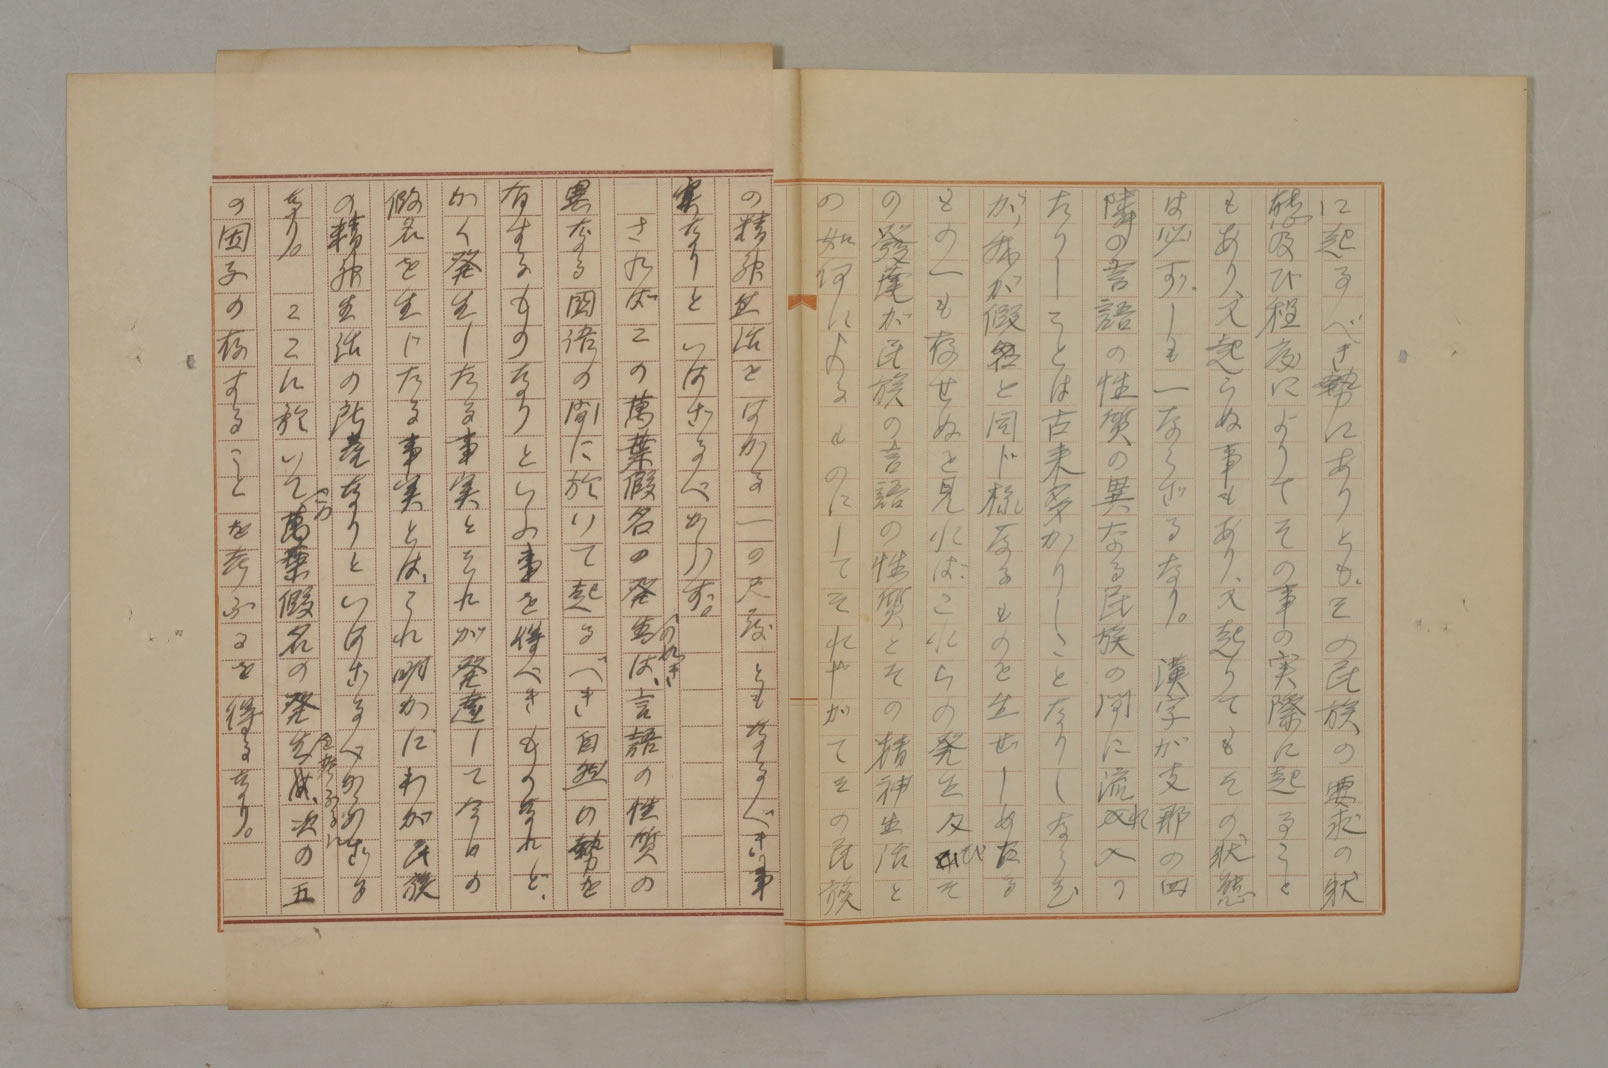 に起るべき勢にありとも、その民族の要求の状
態及び程度によりてその事の実際に起ること
もあり、又起らぬ事もあり、又起りてもその状態
は必ずしも一ならざるなり。漢字が支那の四
隣の言語の性質の異なる民族の間に流れ入り
たりしことは古来多かりしことなりしならむ
が、我が假名と同じ様なるものを生ぜしめたる
もの一も存せぬと見ればこれらの発生及びそ
の發達が民族の言語の性質とその精神生活と
の如何によるものにしてそれやがてその民族
の精神生活をはかる一の尺度ともなるべき事
実なりといはざるべからず。
さればこの萬葉假名の発生は、言語の性質の
異なる国語の間に於いて起るべき自然の勢を
有するものなりといふ事を得べきものなれど、
かく発生したる事実とそれが発達して今日の
假名を生じたる事実とは、これ明かにわが民族
の精神生活の所産なりといはざるべからざる
なり。ここに於いてこの萬葉假名の発生は、次の五
の因子の存することを考ふるを得るなり。